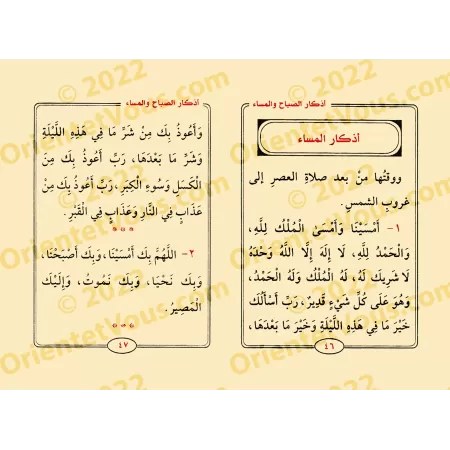 اذكار الصباح والمساء
اذكار المساء
ووقتُها مِنْ بعد صلاةِ العصرِ إلى
غروبِ الشمسِ.
١- أَمْسَيْنَا وَأَمْسَىٰ الْمُلْكُ لِلَّهِ،
وَالْحَمْدُ لِلَّهِ، لَا إِلَهَ إِلَّا اللَّهُ وَحْدَهُ
لَا شَرِيكَ لَهُ، لَهُ الْمُلْكُ وَلَهُ الْحَمْدُ،
وَهُوَ عَلَى كُلِّ شَيْءٍ قَدِيرٌ، رَبِّ أَسْأَلُكَ
خَيْرَ مَا فِي هَذِهِ اللَّيْلَةِ وَخَيْرَ مَا بَعْدَهَا،
٤٦
اذكار الصباح والمساء
وَأَعُوذُ بِكَ مِنْ شَرِّ مَا فِي هَذِهِ اللَّيْلَةِ
وَشَرِّ مَا بَعْدَهَا، رَبِّ أَعُوذُ بِكَ مِنَ
الْكَسَلِ وَسُوءِ الْكِبَرِ، رَبِّ أَعُوذُ بِكَ مِنْ
عَذَابٍ فِي النَّارِ وَعَذَابٍ فِي الْقَبْرِ.
٢- اللَّهُمَّ بِكَ أَمْسَيْنَا، وَبِكَ أَصْبَحْنَا،
وَبِكَ نَحْيَا، وَبِكَ نَمُوتُ، وَإِلَيْكَ
الْمَصِيرُ.
٤٧
© 2022
OrientetVous.com
© 2022
OrientetVous.com
© 2022
OrientetVous.com
© 2022
OrientetVous.com